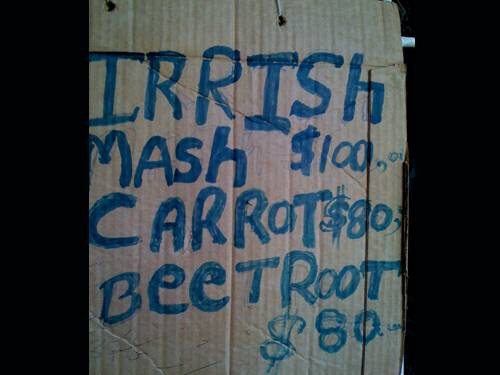 IRRISh
MASh $100.00
CARROT $80;
BeeTROOT
$80.00